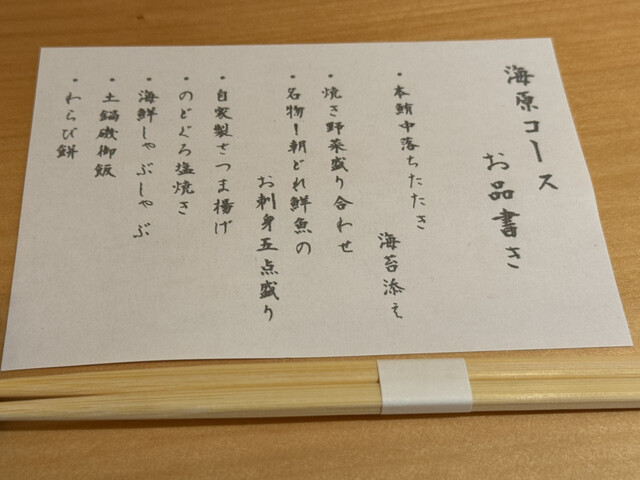 海原コース
お品書き
・本鮪中落ちたたき
海苔添え
・焼き野菜盛り合わせ
・名物!朝どれ鮮魚の
お刺身五点盛り
・自家製さつま揚げ
・のどぐろ塩焼き
・海鮮しゃぶしゃぶ
・土鍋磯御飯
・わらび餅